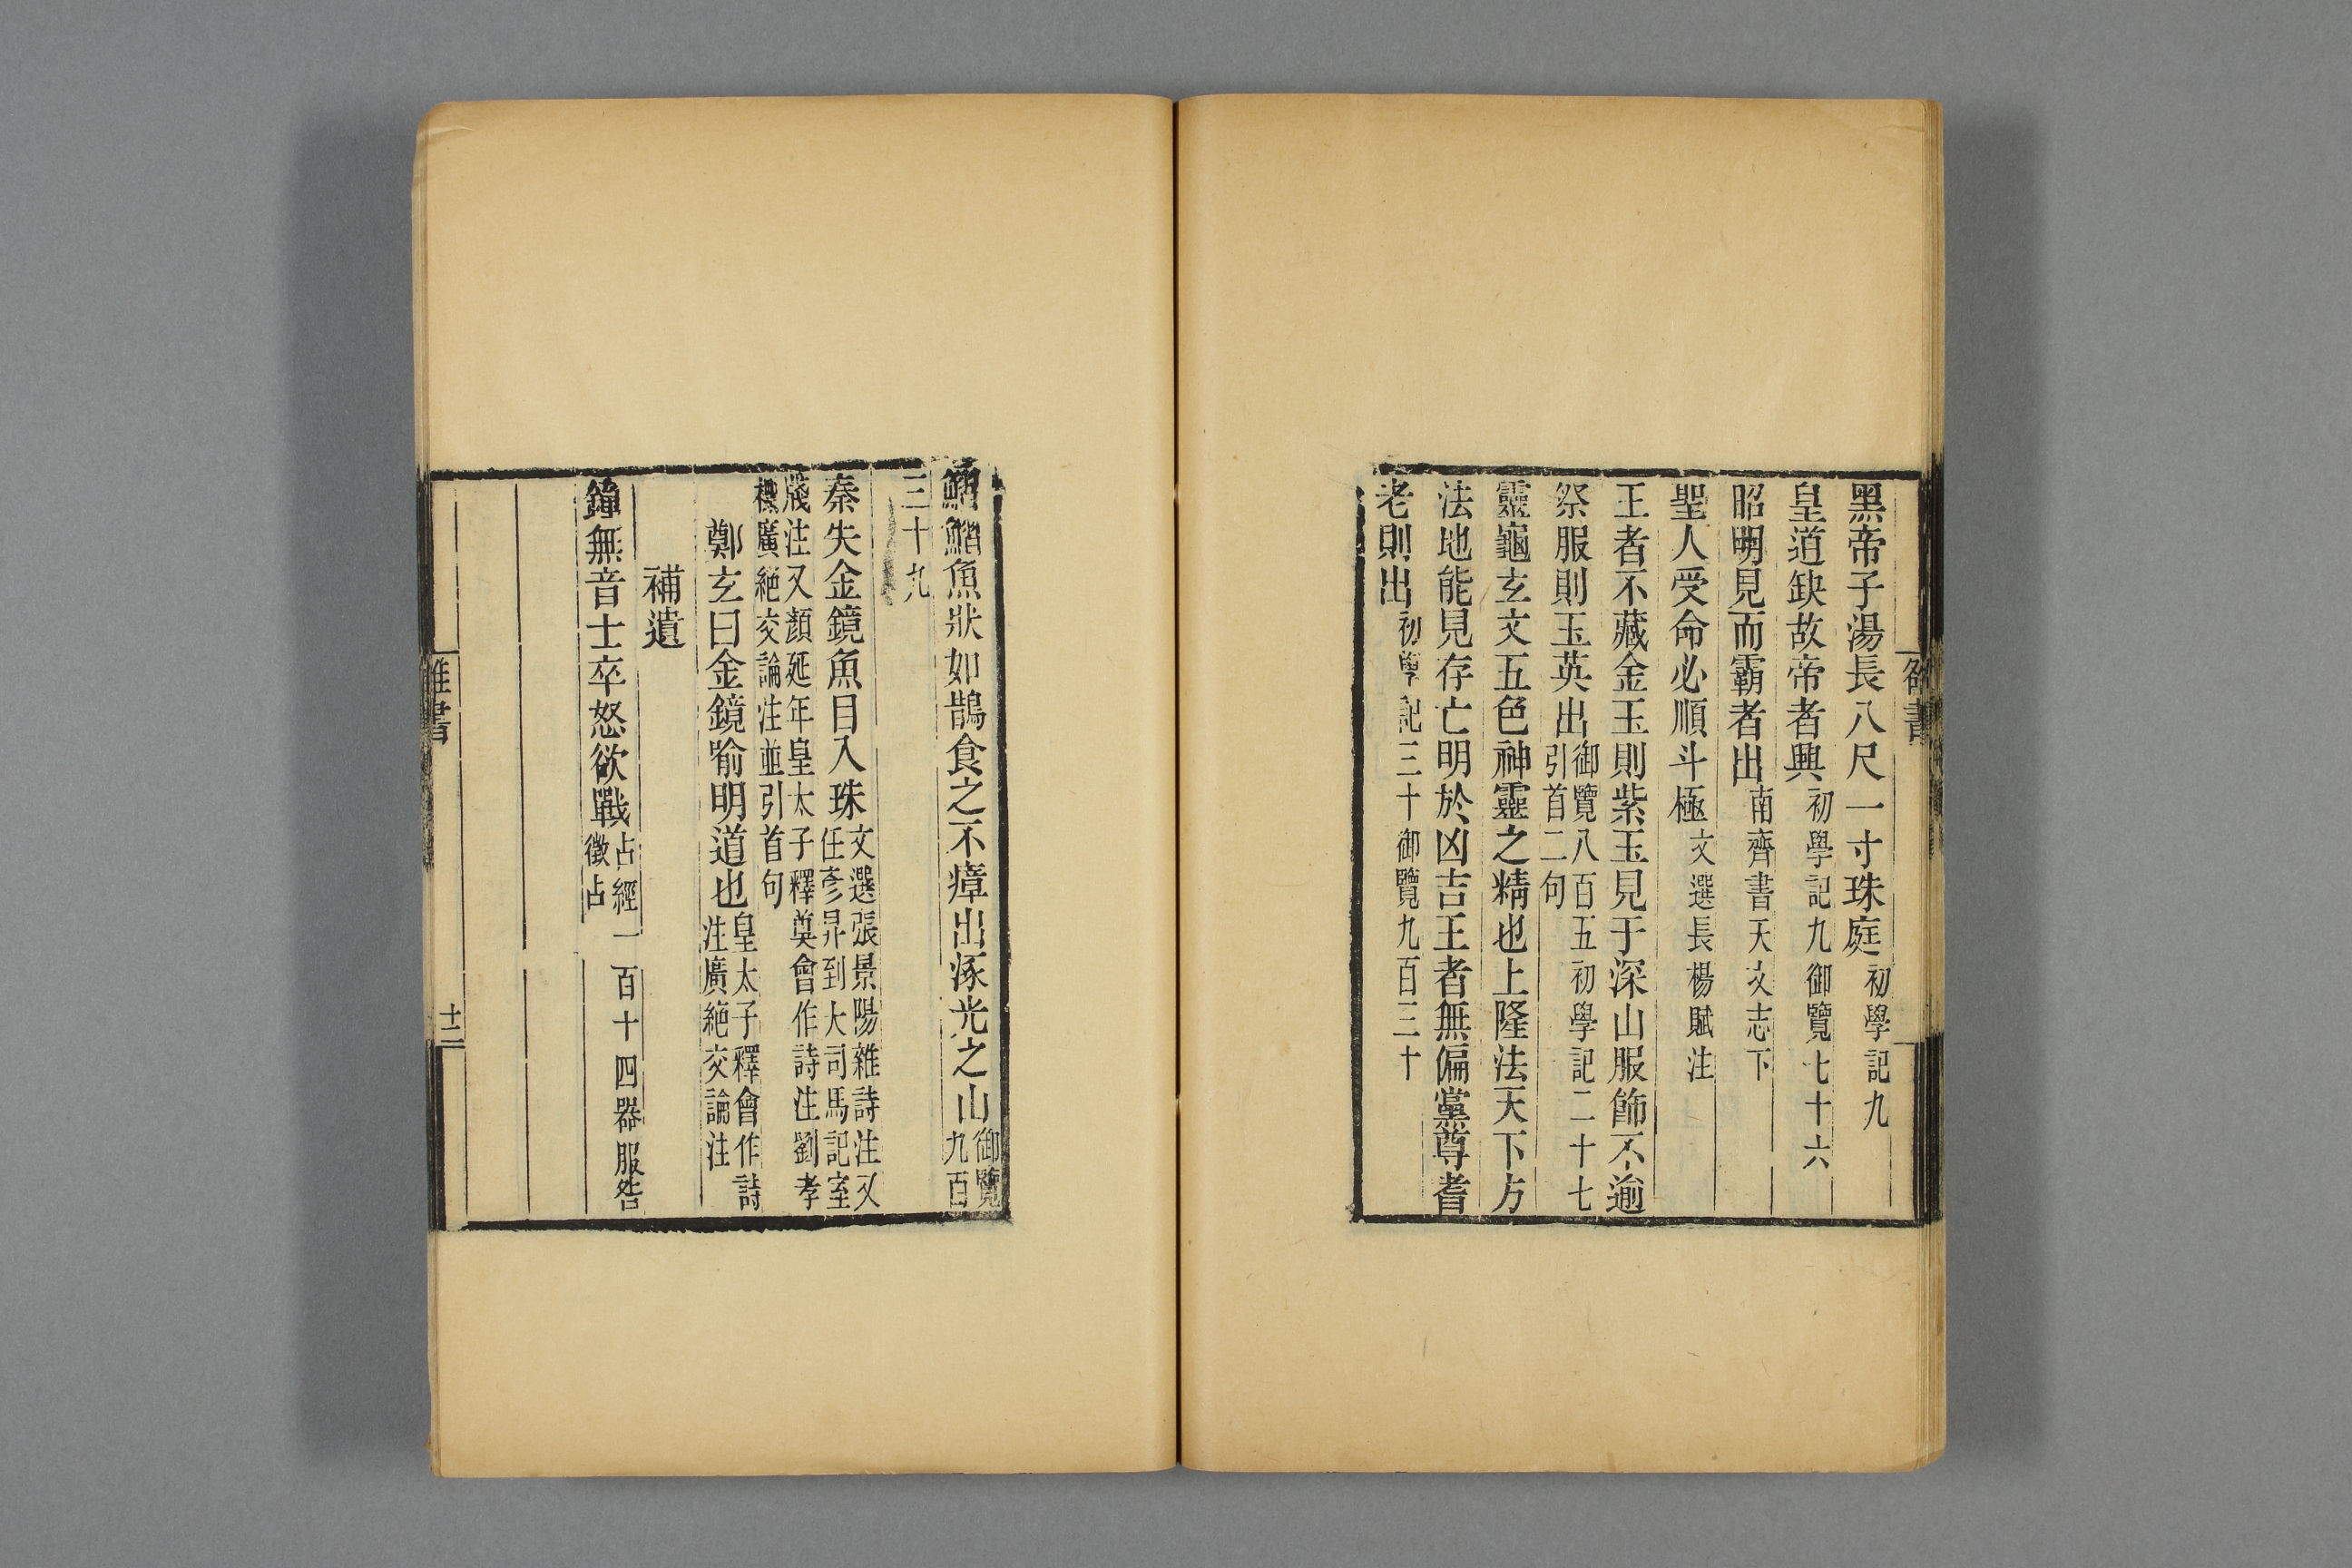 黑帝子湯長八尺一寸珠庭初學記九
皇道缺故帝者興初學記九御覽七十六
昭明見而霸者出南齊書天文志下
聖人受命必順斗極文選長楊賦注
王者不藏金玉則紫玉見于深山服飾不逾
祭服則玉英出御覽八百五初學記二十七引首二句
靈龜玄文五色神靈之精也上隆法天下方
法地能見存亡明於凶吉王者無偏黨尊耆
老則出初學記三十御覽九百三十
鰼鰼魚狀如鵲食之不瘴出涿光之山御覽九百
三十九
秦失金鏡魚目入珠文選張景陽雜詩注又任彥昇到大司馬記室
牋注又顏延年皇太子釋奠會作詩注劉孝標廣絶交論注並引首句
鄭玄曰金鏡喻明道也皇太子釋會作詩注廣絶交論注
補遺
鐘無音士卒怒欲戰占經一百十四器服咎徵占
雒書
十二